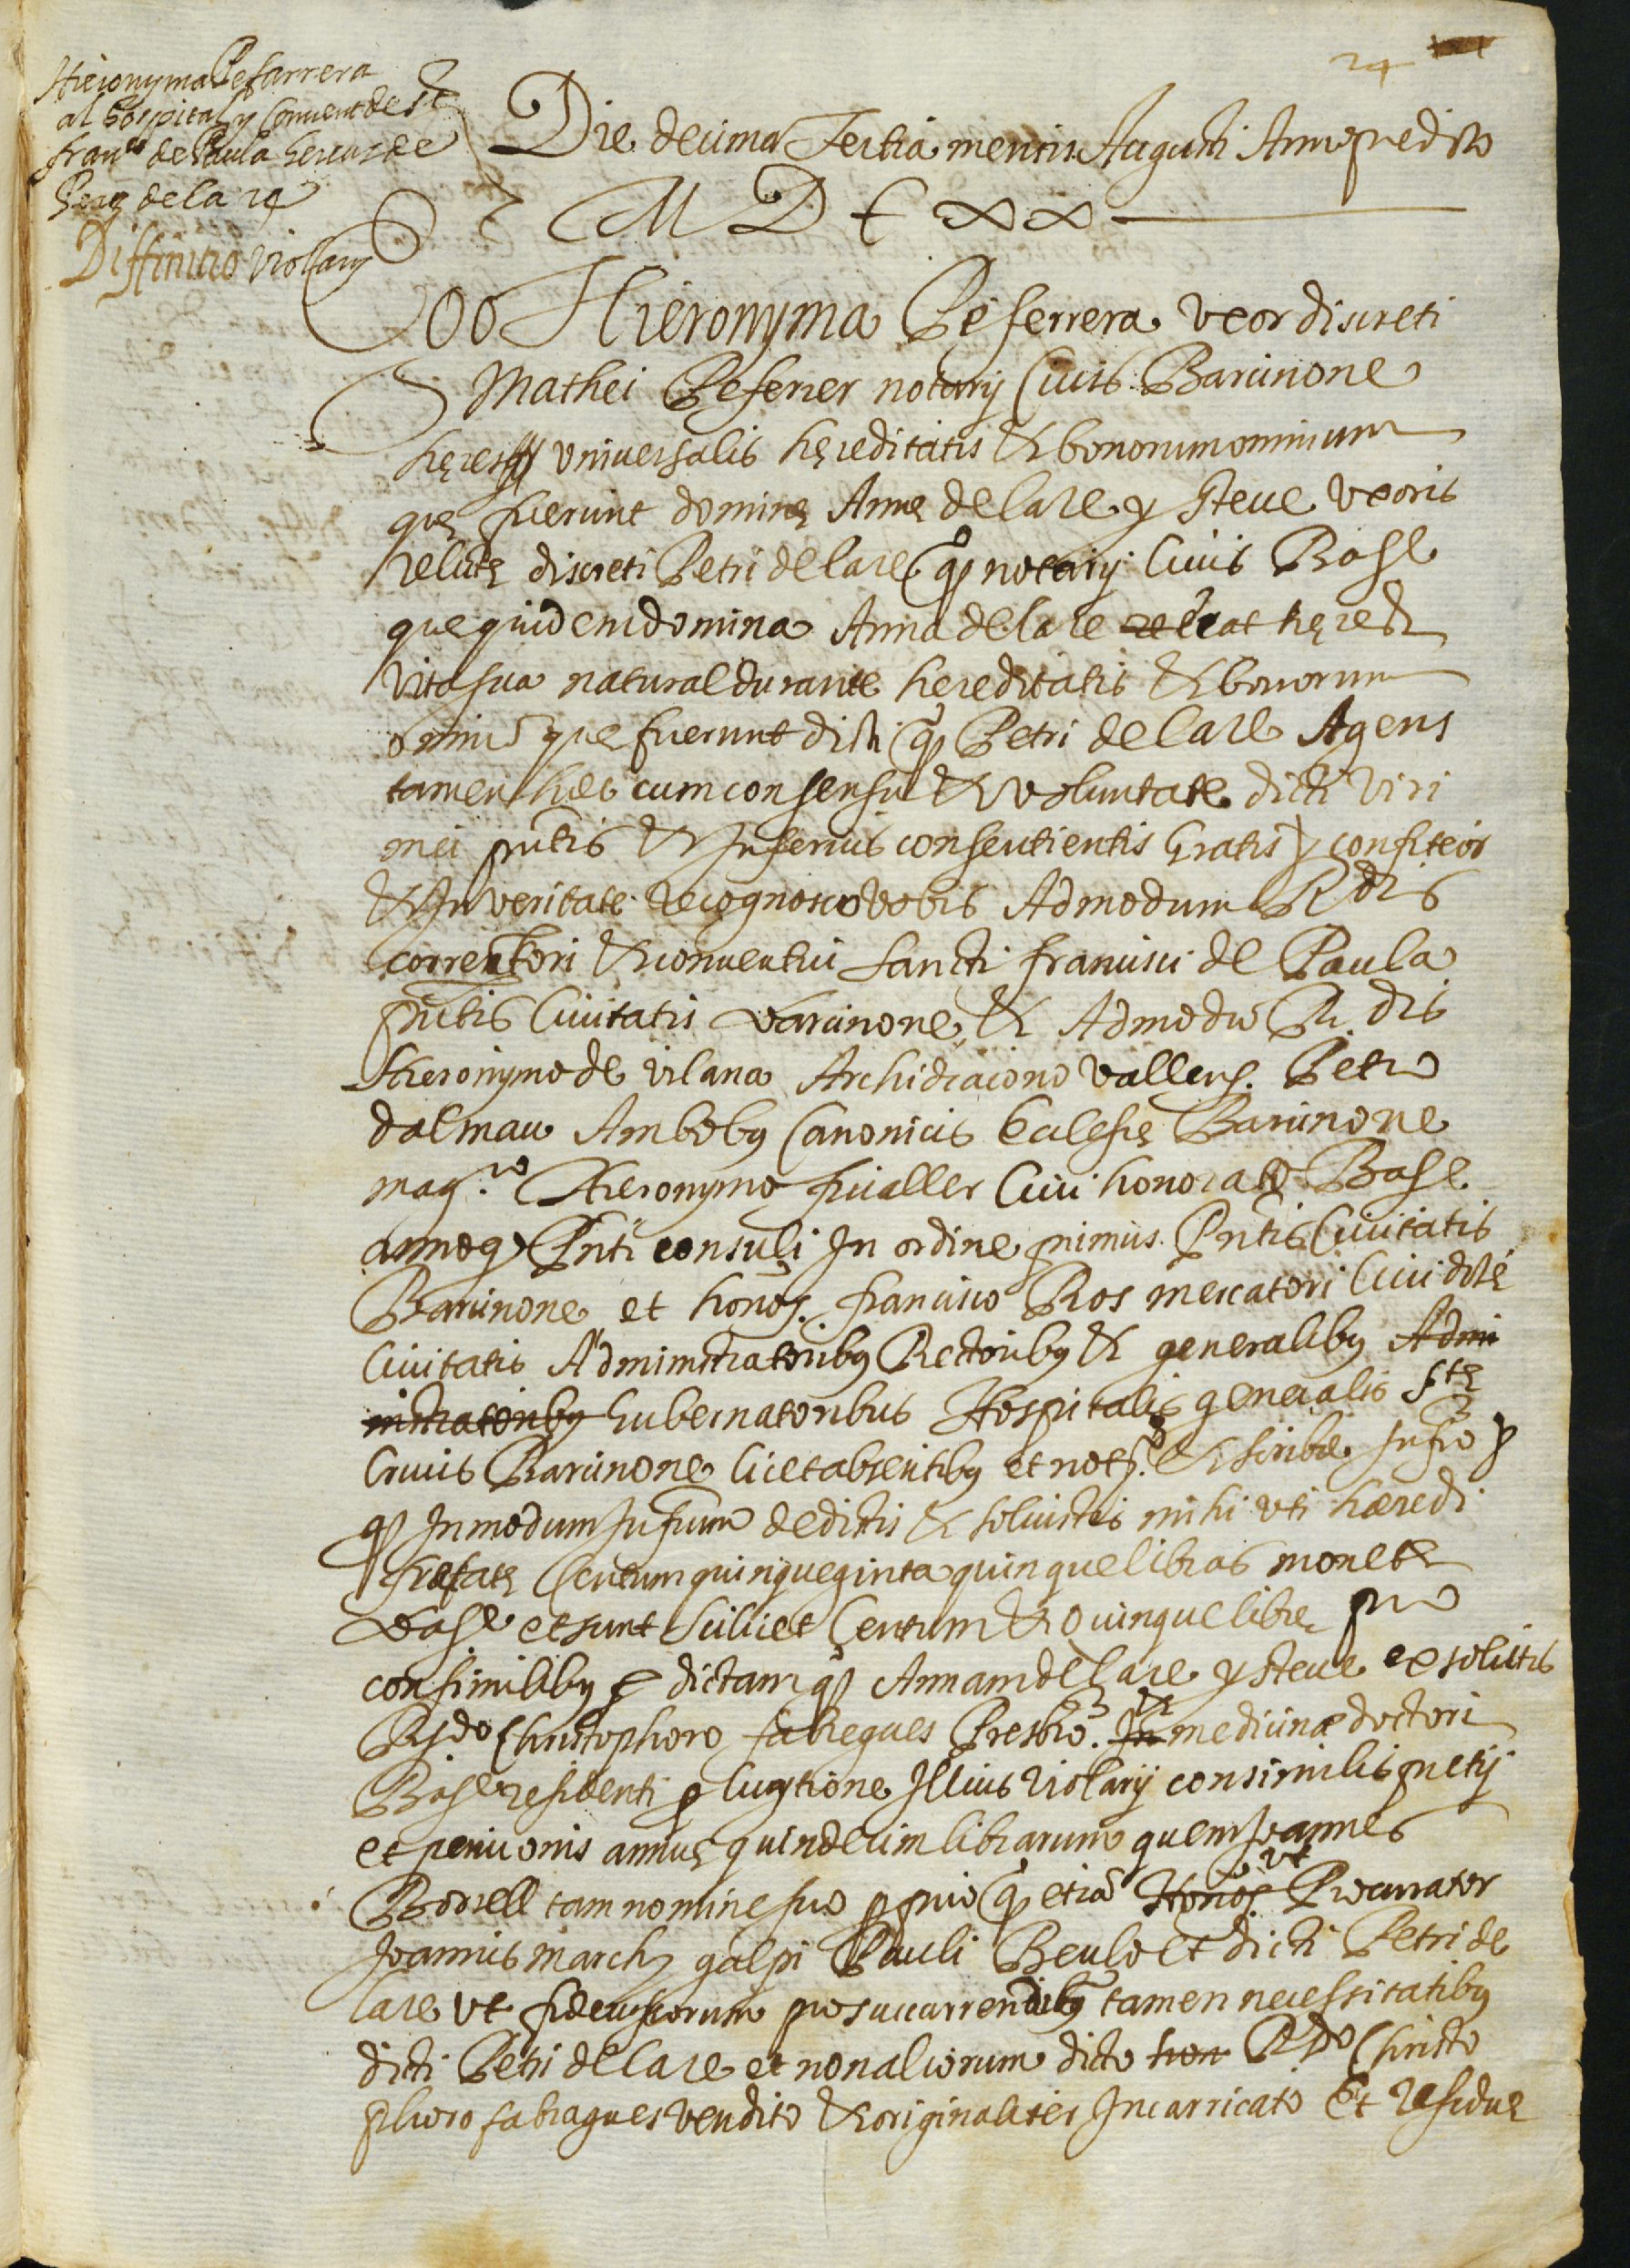 24
Hieronyma Peferrera
al Hospital y Convent de St
franco de Paula hereus de
Pere de la re
Diffinitio violarij
Die decima Tertia mensis Augusti Anno predicto
M D C xx
Ego Hieronyma Peferrera uxor discreti
Mathei Peferrer notarij Civis Barcinone
heres universalis hereditatis & bonorum omnium
que fuerunt domine Anne de la re y Steve uxoris
relicte discreti Petri de la re q° notarij Civis Barne
que quidem domina Anna de la re erat heres
vita sua natural durante hereditatis & bonorum
omniu que fuerunt dicti q° Petri de la re Agens
tamen hec cum consensu & voluntate dicti viri
mei pntis & Inferius consentientis Gratis y confiteor
& In veritate recognosco vobis Admodum Rdis
correctori & conventui Sancti francisci de Paula
pntis Civitatis Barcinone & Admodu R. dis
Hieronymo de vilana Archidiacono Vallens. Petro
dalmau Ambobus Canonicis Ecclesie Barcinone
mag.co Hieronymo fivaller Civi honorato Barne
annoq Pnti consuli In ordine primus Pntis Civitatis
Barcinone et honor. francisco Ros mercatori Civi dicte
Civitatis Administratoribus Rectoribus & generalibus Admi
nistratoribus Gubernatoribus Hospitalis generalis Ste
Crucis Barcinone licet absentibus et not. & scribe infro
q° In modum infrum dedistis & solvistis mihi uti haeredi
prefate Centum quinqueginta quinque libras monete
Barne et sunt scilicet Centum & quinque libre pro
consimilibus per dictam q° Annam de la re y steve exsolutis
Rdo Christophoro fabregues Presbro. In & medicinae doctori
Barne residenti p luytione Illius violarij consimilis pretij
et pencionis annue quindecim librarum quem Joannes
Borrell tam nomine suo proprio q etia Honor ut Procurator
Joannis march galpi Pauli Beulo et dicti Petri de
la re ut fideiussorum pro succurrendibus tamen necessitatibus
dicti Petri de la re et non aliorum dicto hon Rdo Christo
phoro fabragues vendito & originaliter Incarricato Et residue